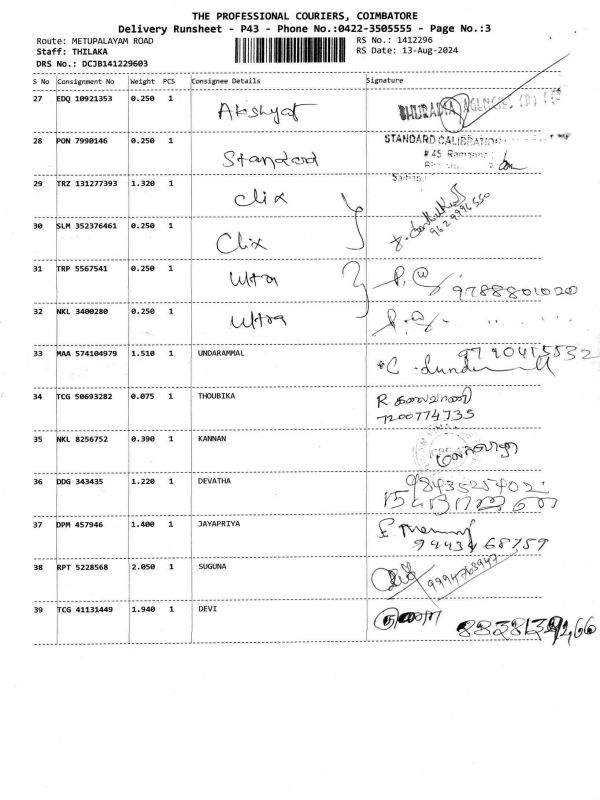 THE PROFESSIONAL COURIERS, COIMBATORE
Delivery Runsheet - P43 - Phone No.:0422-3505555 - Page No.:3
Route: METUPALAYAM ROAD RS No.: 1412296
Staff: THILAKA RS Date: 13-Aug-2024
DRS No.: DCJB141229603
S No Consignment No Weight PCS Consignee Details Signature
27 EDQ 10921353 0.250 1 Akshyat AGENCIES, (P)
28 PON 7990146 0.250 1 Standard STANDARD CALIBRATION
# 45 Ramanna
29 TRZ 131277393 1.320 1 Clix
30 SLM 352376461 0.250 1 Clix 9629996550
31 TRP 5567541 0.250 1 Ultra 9788801020
32 NKL 3400280 0.250 1 Ultra
33 MAA 574104979 1.510 1 UNDARAMMAL 9790415532
34 TCG 50693282 0.075 1 THOUBIKA R. கலைவாணி
7200774735
35 NKL 8256752 0.390 1 KANNAN
36 DDG 343435 1.220 1 DEVATHA 9843525402
37 DPM 457946 1.400 1 JAYAPRIYA
9443468759
38 RPT 5228568 2.050 1 SUGUNA 9994763947
39 TCG 41131449 1.940 1 DEVI